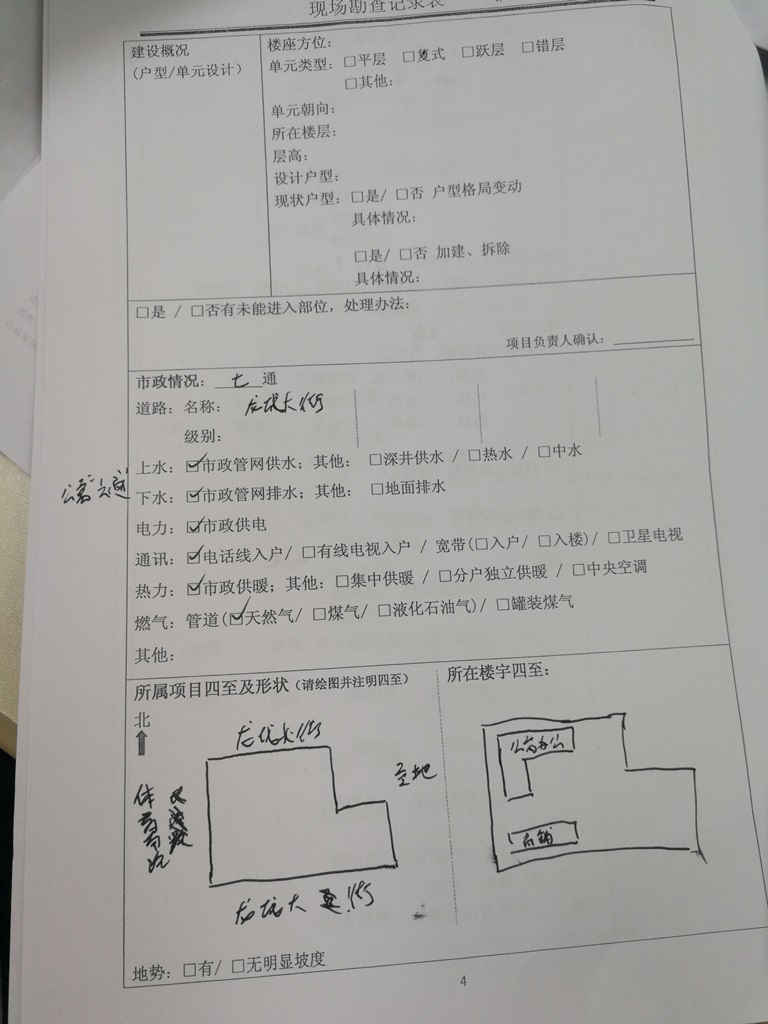 现场勘查记录表
建设概况
(户型/单元设计)
楼座方位:
单元类型: □平层 □复式 □跃层 □错层
□其他:
单元朝向:
所在楼层:
层高:
设计户型:
现状户型: □是/ □否 户型格局变动
具体情况:
□是/ □否 加建、拆除
具体情况:
□是 / □否有未能进入部位，处理办法:
项目负责人确认:
市政情况: 七 通
道路: 名称: 大街
级别:
上水: ☑市政管网供水; 其他: □深井供水 / □热水 / □中水
下水: ☑市政管网排水; 其他: □地面排水
电力: ☑市政供电
通讯: ☑电话线入户/ □有线电视入户 / 宽带(□入户/ □入楼)/ □卫星电视
热力: ☑市政供暖; 其他: □集中供暖 / □分户独立供暖 / □中央空调
燃气: 管道(☑天然气/ □煤气/ □液化石油气)/ □罐装煤气
其他:
所属项目四至及形状 (请绘图并注明四至)
北
大街
空地
体育
大 街
所在楼宇四至:
办公
店铺
地势: □有/ □无明显坡度
4